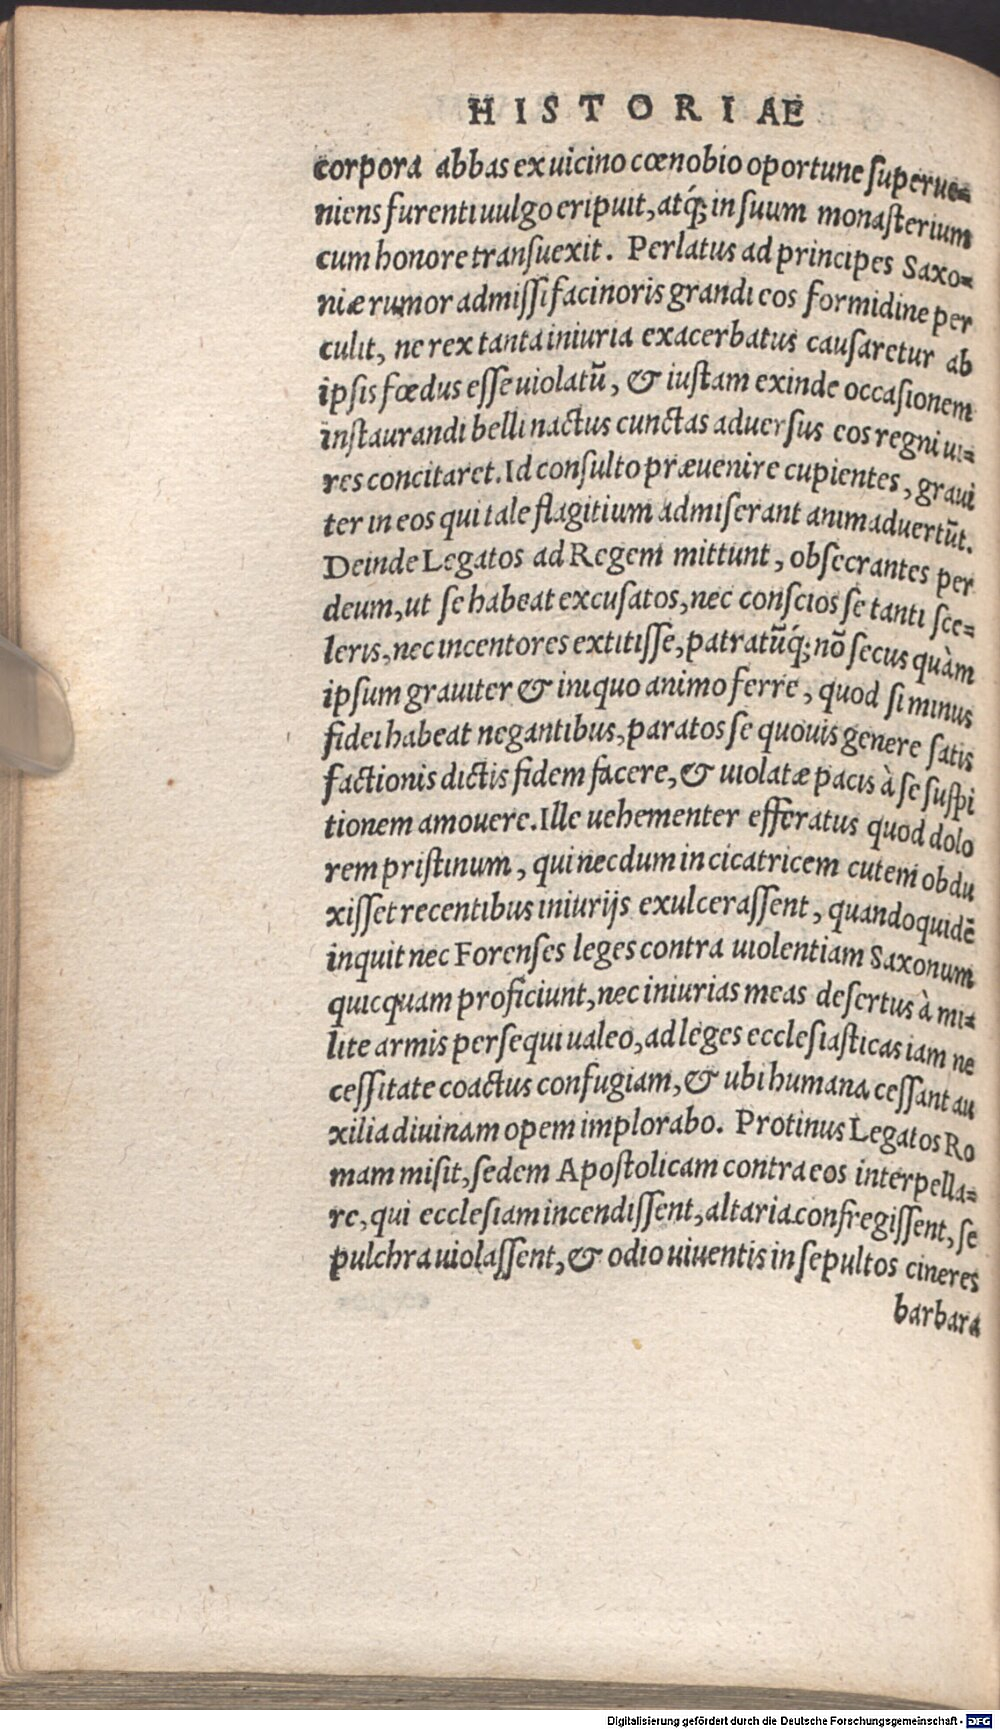 HISTORIAE
corpora abbas ex uicino cœnobio oportune ſuperue=
niens furenti uulgo eripuit, atq́; in ſuum monaſterium
cum honore tranſuexit. Perlatus ad principes Saxo=
niæ rumor admiſſi facinoris grandi eos formidine per
culit, ne rex tanta iniuria exacerbatus cauſaretur ab
ipſis fœdus eſſe uiolatū, & iuſtam exinde occaſionem
inſtaurandi belli nactus cunctas aduerſus eos regni ui=
res concitaret. Id conſulto præuenire cupientes, graui
ter in eos qui tale flagitium admiſerant animaduertūt.
Deinde Legatos ad Regem mittunt, obſecrantes per
deum, ut ſe habeat excuſatos, nec conſcios ſe tanti ſce=
leris, nec incentores extitiſſe, patratūq́; nō ſecus quàm
ipſum grauiter & iniquo animo ferre, quod ſi minus
fidei habeat negantibus, paratos ſe quouis genere ſatis
factionis dictis fidem facere, & uiolatæ pacis à ſe ſuſpi
tionem amouere. Ille uehementer efferatus quod dolo
rem priſtinum, qui necdum in cicatricem cutem obdu
xiſſet recentibus iniurijs exulceraſſent, quandoquidē
inquit nec Forenſes leges contra uiolentiam Saxonum
quicquam proficiunt, nec iniurias meas deſertus à mi=
lite armis perſequi ualeo, ad leges eccleſiaſticas iam ne
ceſſitate coactus confugiam, & ubi humana ceſſant au
xilia diuinam opem implorabo. Protinus Legatos Ro
mam miſit, ſedem Apoſtolicam contra eos interpella=
re, qui eccleſiam incendiſſent, altaria confregiſſent, ſe
pulchra uiolaſſent, & odio uiuentis in ſepultos cineres
barbara
Digitalisierung gefördert durch die Deutsche Forschungsgemeinschaft - DFG